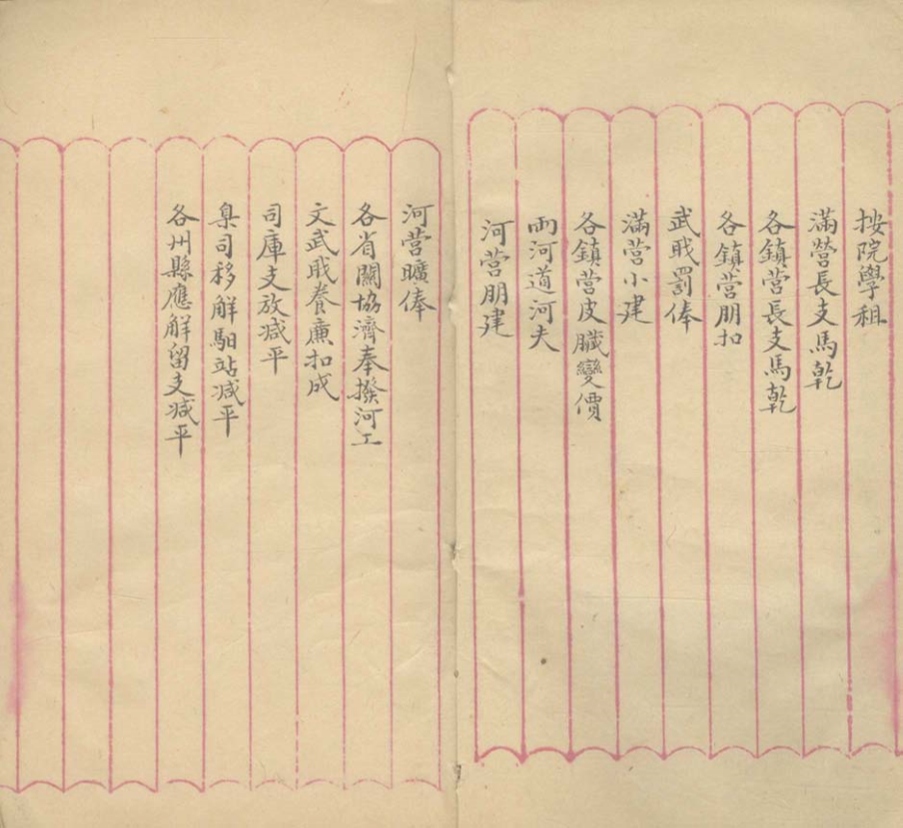 按院學租
滿營長支馬乾
各鎮營長支馬乾
各鎮營朋扣
武職罰俸
滿營小建
各鎮營皮臟變價
兩河道河夫
河營朋建
河營曠俸
各省關協濟奉撥河工
文武職養廉扣成
司庫支放减平
臬司移解馹站减平
各州縣應解留支减平